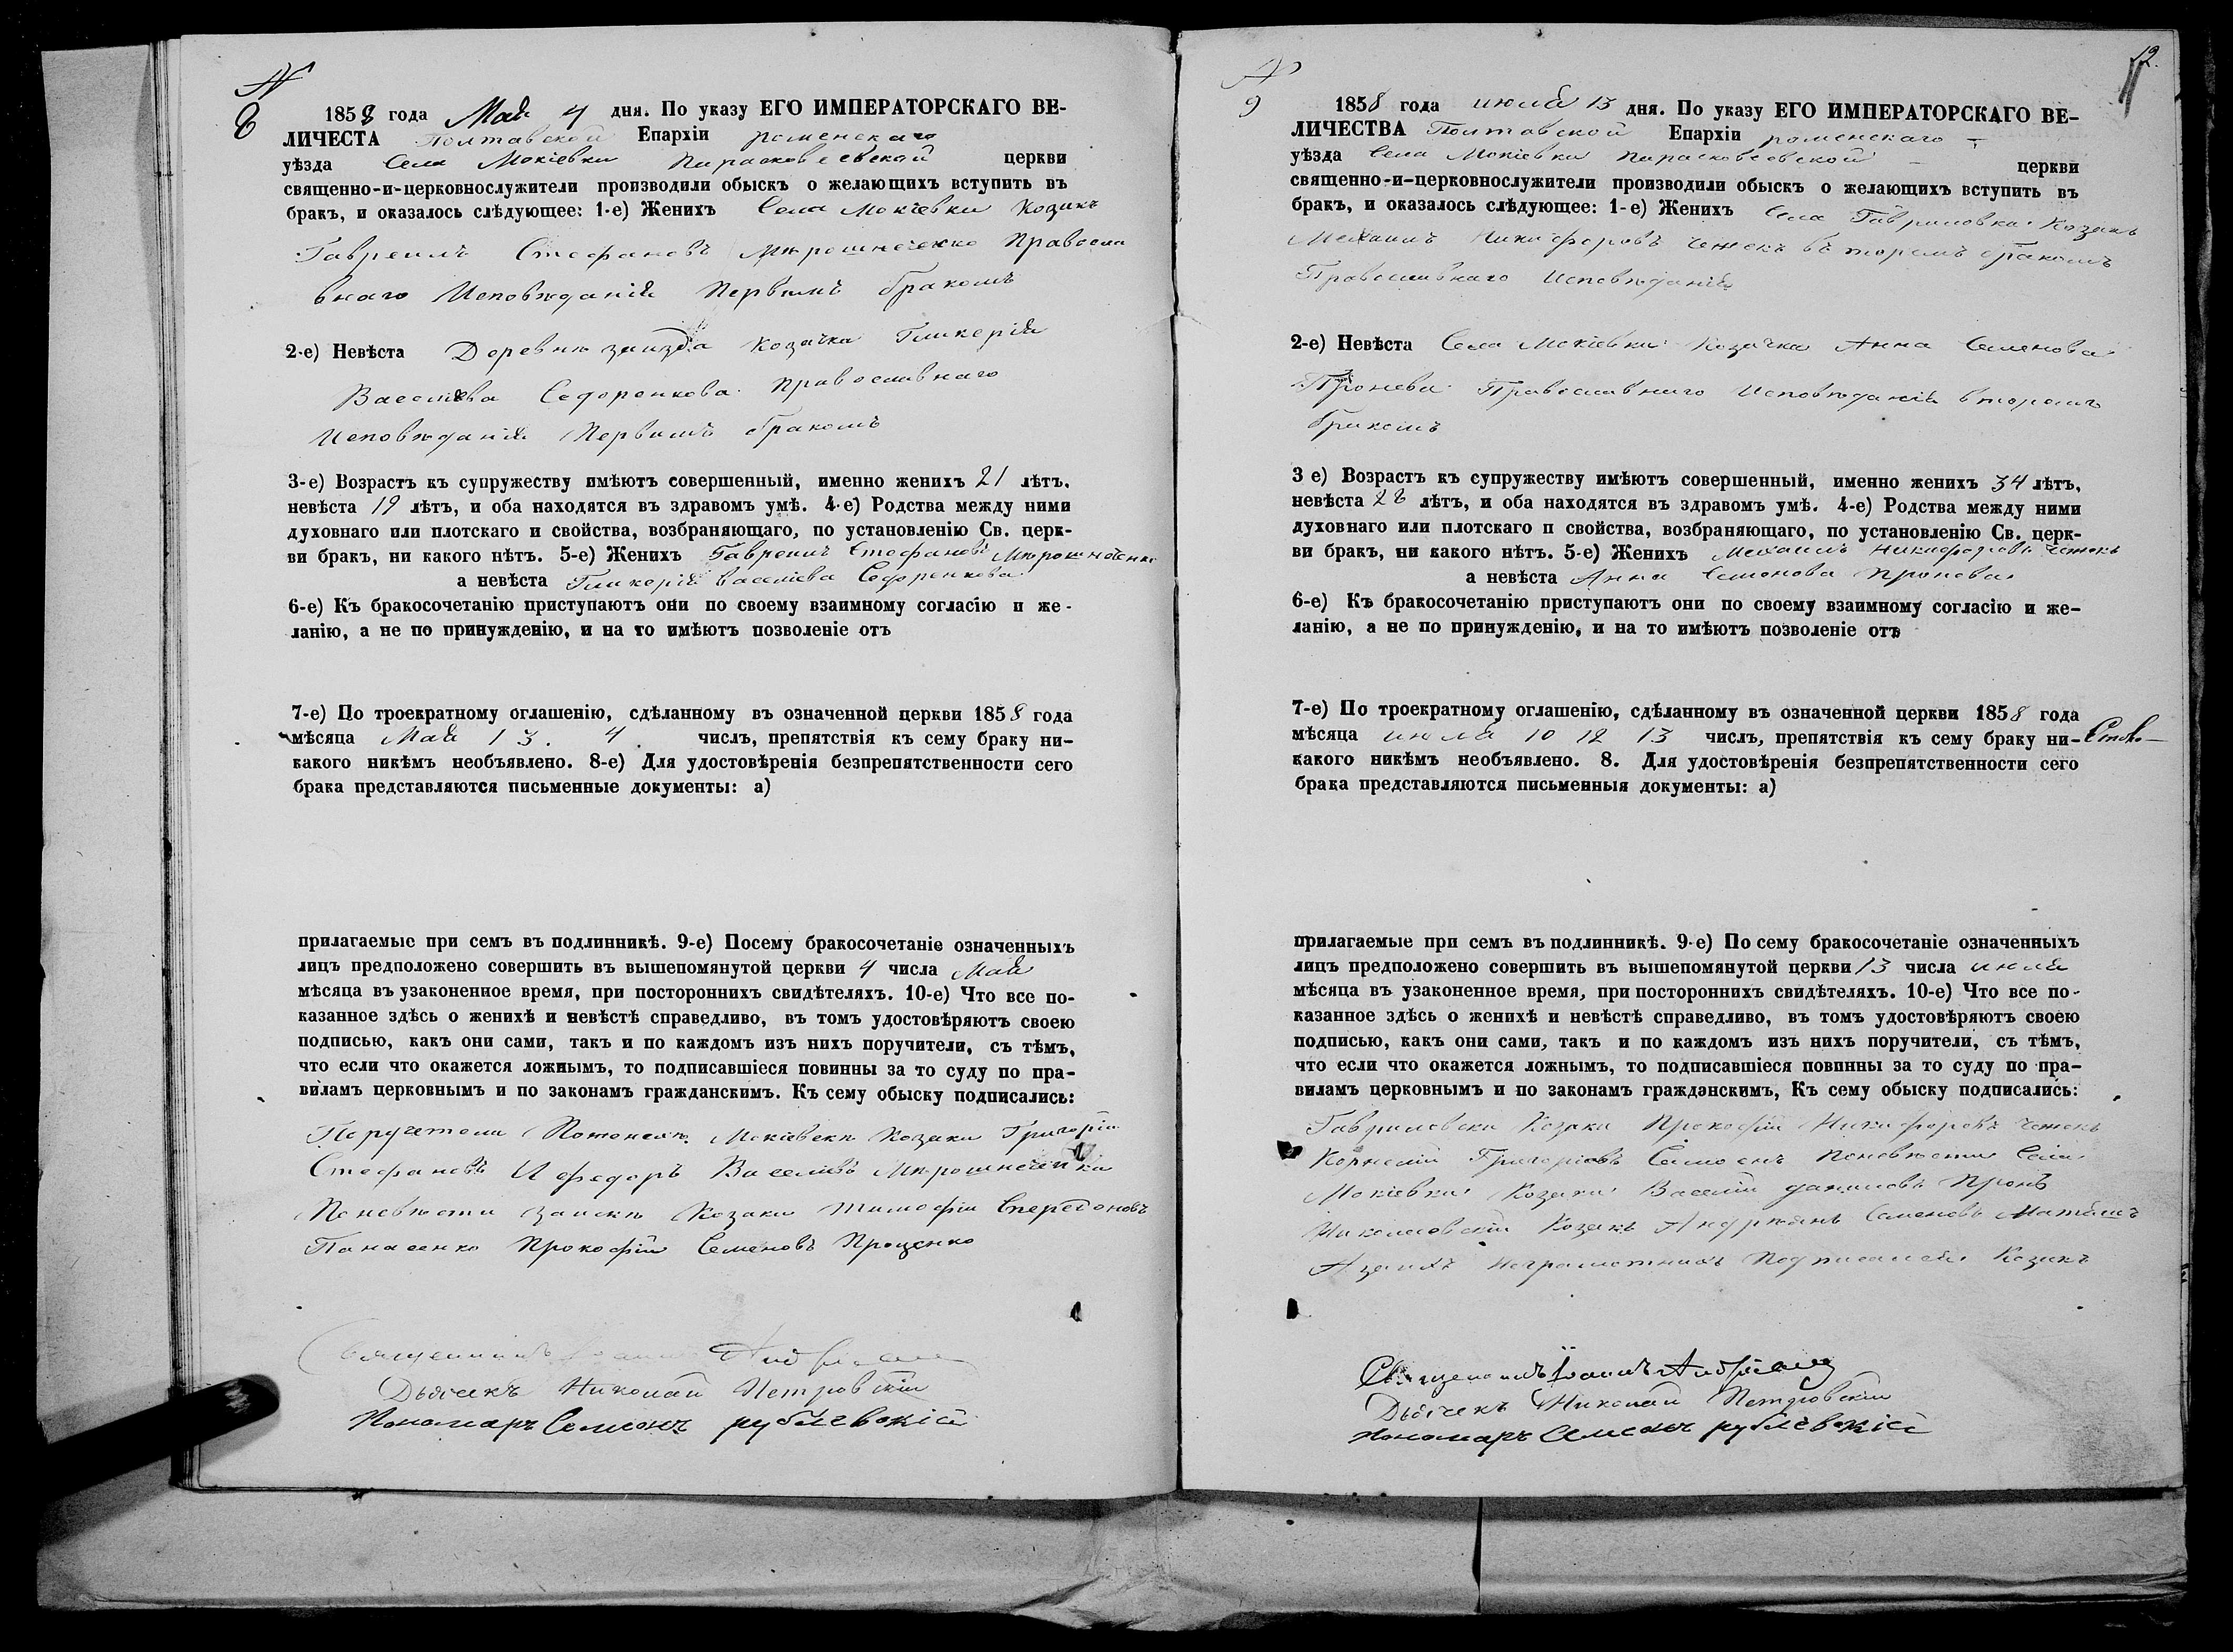 N
8
1858 года Мая 4 дня. По указу ЕГО ИМПЕРАТОРСКАГО ВЕ-
ЛИЧЕСТА Полтавской Епархіи роменскаго
уѣзда Села Мокіевки Парасковеевской церкви
священно-и-церковнослужители производили обыскъ о желающихъ вступить въ
бракъ, и оказалось слѣдующее: 1-е) Женихъ Села Мокіевки Козакъ
Гавреилъ Стефановъ Мирошнеченко Правосла
внаго Исповѣданія Первимъ бракомъ
2-е) Невѣста Деревнѣ заизда козачка Гликерія
Васелієва Седоренкова Православнаго
Исповѣданія Первимъ бракомъ
3-е) Возрастъ къ супружеству имѣютъ совершенный, именно женихъ 21 лѣтъ,
невѣста 19 лѣтъ, и оба находятся въ здравомъ умѣ. 4-е) Родства между ними
духовнаго или плотскаго и свойства, возбраняющаго, по установленію Св. церк-
ви бракъ, ни какого нѣтъ. 5-е) Женихъ Гавреилъ Стефановъ Мирошнеченко
а невѣста Гликерія Васелієва Седоренкова
6-е) Къ бракосочетанію приступаютъ они по своему взаимному согласію и же-
ланію, а не по принужденію, и на то имѣютъ позволеніе отъ
7-е) По троекратному оглашенію, сдѣланному въ означенной церкви 1858 года
мѣсяца Мая 1 3. 4 числъ, препятствія къ сему браку ни-
какого никѣмъ необъявлено. 8-е) Для удостовѣренія безпрепятственности сего
брака представляются письменные документы: а)
прилагаемые при семъ въ подлинникѣ. 9-е) Посему бракосочетаніе означенныхъ
лицъ предположено совершить въ вышепомянутой церкви 4 числа Мая
мѣсяца въ узаконенное время, при постороннихъ свидѣтеляхъ. 10-е) Что все по-
казанное здѣсь о женихѣ и невѣстѣ справедливо, въ томъ удостовѣряютъ своею
подписью, какъ они сами, такъ и по каждомъ изъ нихъ поручители, съ тѣмъ,
что если что окажется ложнымъ, то подписавшіеся повинны за то суду по пра-
виламъ церковнымъ и по законамъ гражданскимъ. Къ сему обыску подписались:
Поручетели Пожонехѣ Мокіевски Козаки Григорій
Стефановъ И федоръ Васелієвъ Мирошнеченки
Поневѣсти заиски Козаки Тимофій Спередоновъ
Панасенко Прокофій Семеновъ Проценко
Священникъ Іоаннъ
Дьячекъ Николай Петровскій
Пономаръ Семіонъ рублевскій
N
9
12.
1858 года июля 13 дня. По указу ЕГО ИМПЕРАТОРСКАГО ВЕ-
ЛИЧЕСТВА Полтавской Епархіи роменскаго
уѣзда Села Мокіевки Парасковеевской церкви
священно-и-церковнослужители производили обыскъ о желающихъ вступить въ
бракъ, и оказалось слѣдующее: 1-е) Женихъ Села Гавриловки Козакъ
Мехаилъ Никифоровъ Чежекъ вторемъ бракомъ
Православнаго Исповѣданія
2-е) Невѣста Села Мокіевки Козачка Анна Семенова
Пронева Православнаго Исповѣданія вторемъ
бракомъ
3 е) Возрастъ къ супружеству имѣютъ совершенный, именно женихъ 34 лѣтъ,
невѣста 28 лѣтъ, и оба находятся въ здравомъ умѣ. 4-е) Родства между ними
духовнаго или плотскаго п свойства, возбраняющаго, по установленію Св. церк-
ви бракъ, ни какого нѣтъ. 5-е) Женихъ Мехаилъ Никифоровъ Чежекъ
а невѣста Анна Семенова Пронева
6-е) Къ бракосочетанію приступаютъ они по своему взаимному согласію и же-
ланію, а не по принужденію, и на то имѣютъ позволеніе отъ
7-е) По троекратному оглашенію, сдѣланному въ означенной церкви 1858 года
мѣсяца июля 10 12 13 числъ, препятствія къ сему браку ни-
какого никѣмъ необъявлено. 8. Для удостовѣренія безпрепятственности сего
брака представляются письменныя документы: а)
прилагаемые при семъ въ подлинникѣ. 9-е) По сему бракосочетаніе означенныхъ
лицъ предположено совершить въ вышепомянутой церкви 13 числа июля
мѣсяца въ узаконенное время, при постороннихъ свидѣтеляхъ. 10-е) Что все по-
казанное здѣсь о женихѣ и невѣстѣ справедливо, въ томъ удостовѣряютъ своею
подписью, какъ они сами, такъ и по каждомъ изъ нихъ поручители, съ тѣмъ,
что если что окажется ложнымъ, то подписавшіеся повинны за то суду по пра-
виламъ церковнымъ и по законамъ гражданскимъ, Къ сему обыску подписались:
Гавриловски Козаки Прокофій Никифоровъ Чежекъ
Корнелій Григоріовъ Поневѣсти Села
Мокіевки Козаки Васелій даниловъ Пронъ
Николаовскій Козакъ Андріянъ Семеновъ
А за нихъ неграмотнихъ Подписался Козакъ
Священникъ Іоаннъ
Дьячекъ Николай Петровскій
Пономаръ Семіонъ рублевскій